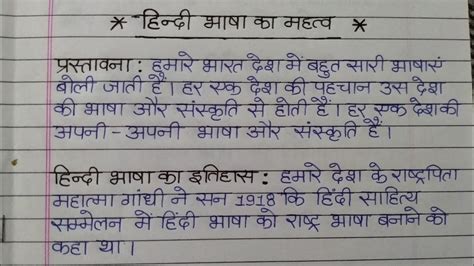 * हिन्दी भाषा का महत्व *
प्रस्तावना : हमारे भारत देश में बहुत सारी भाषासं
बोली जाती हैं। हर एक देश की पहचान उस देश
की भाषा और संस्कृति से होती हैं। हर एक देशकी
अपनी - अपनी भाषा और संस्कृति हैं।
हिन्दी भाषा का इतिहास : हमारे देश के राष्ट्रपिता
महात्मा गांधी ने सन 1918 कि हिंदी साहित्य
सम्मेलन में हिंदी भाषा को राष्ट्र भाषा बनाने को
कहा था।